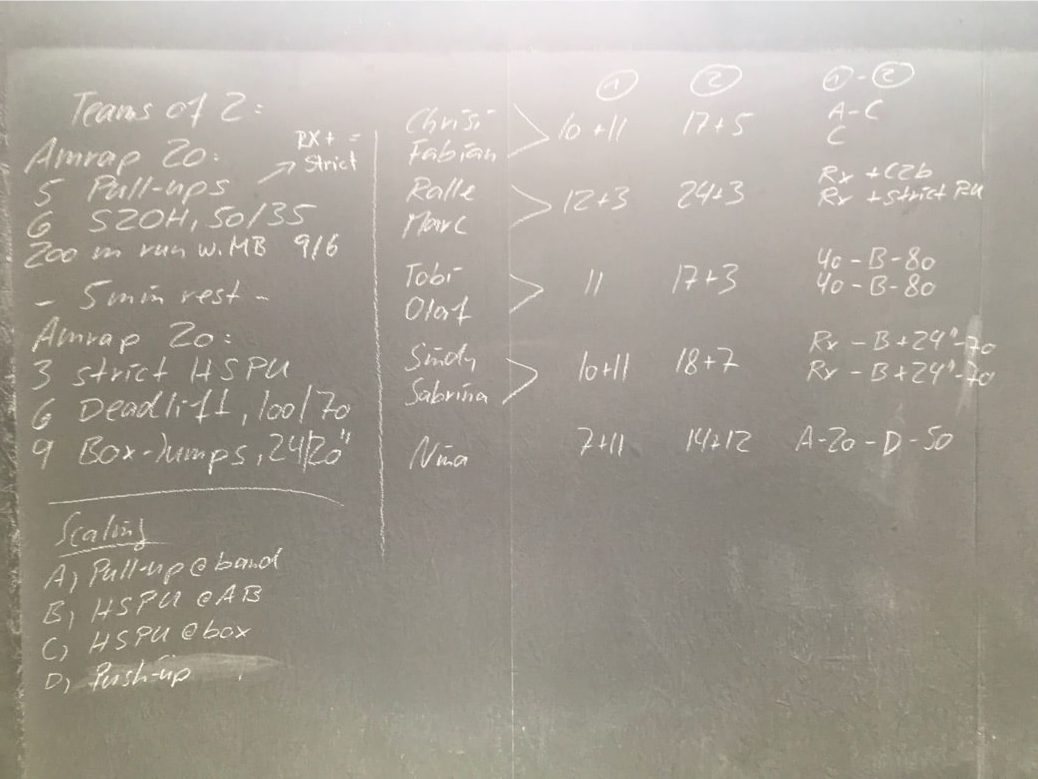 Teams of 2:
Amrap 20:
RX+ =
Strict
5 Pull-ups
6 S2OH, 50/35
200 m run w. MB 9/6
- 5 min rest -
Amrap 20:
3 strict HSPU
6 Deadlift, 100/70
9 Box-Jumps, 24/20"
Scaling
A) Pull-up @ band
B) HSPU @ AB
C) HSPU @ box
D) Push-up
1 2 1 - 2
Chrisi
Fabian
10+11 17+5 A-C
C
Ralle
Marc
12+3 24+3 Rx + C2b
Rx + strict PU
Tobi
Olaf
11 17+3 40 - B - 80
40 - B - 80
Sindy
Sabrina
10+11 18+7 Rx - B+24"-70
Rx - B+24"-70
Nina 7+11 14+12 A-20-D-50